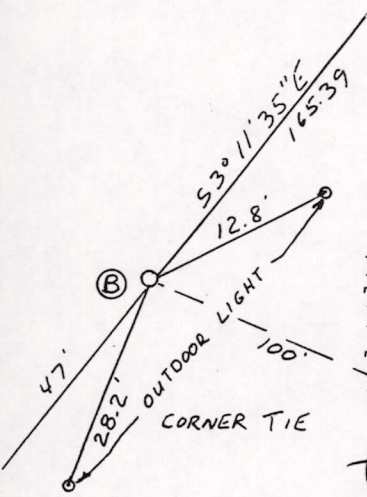 53° 11' 35" E
165.39
12.8'
B
OUTDOOR LIGHT
100'
47'
28.2'
CORNER TIE